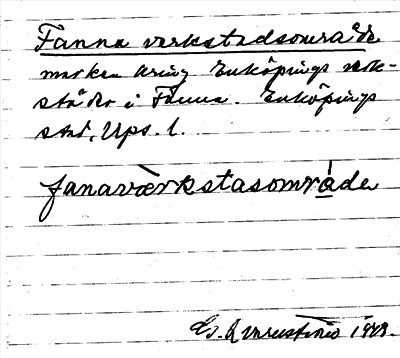 Fanna verkstadsområde
marken kring Enköpings verk-
städer i Fanna. Enköpings
stad, Ups. l.
fanavèrkstasomrǻde
1949.